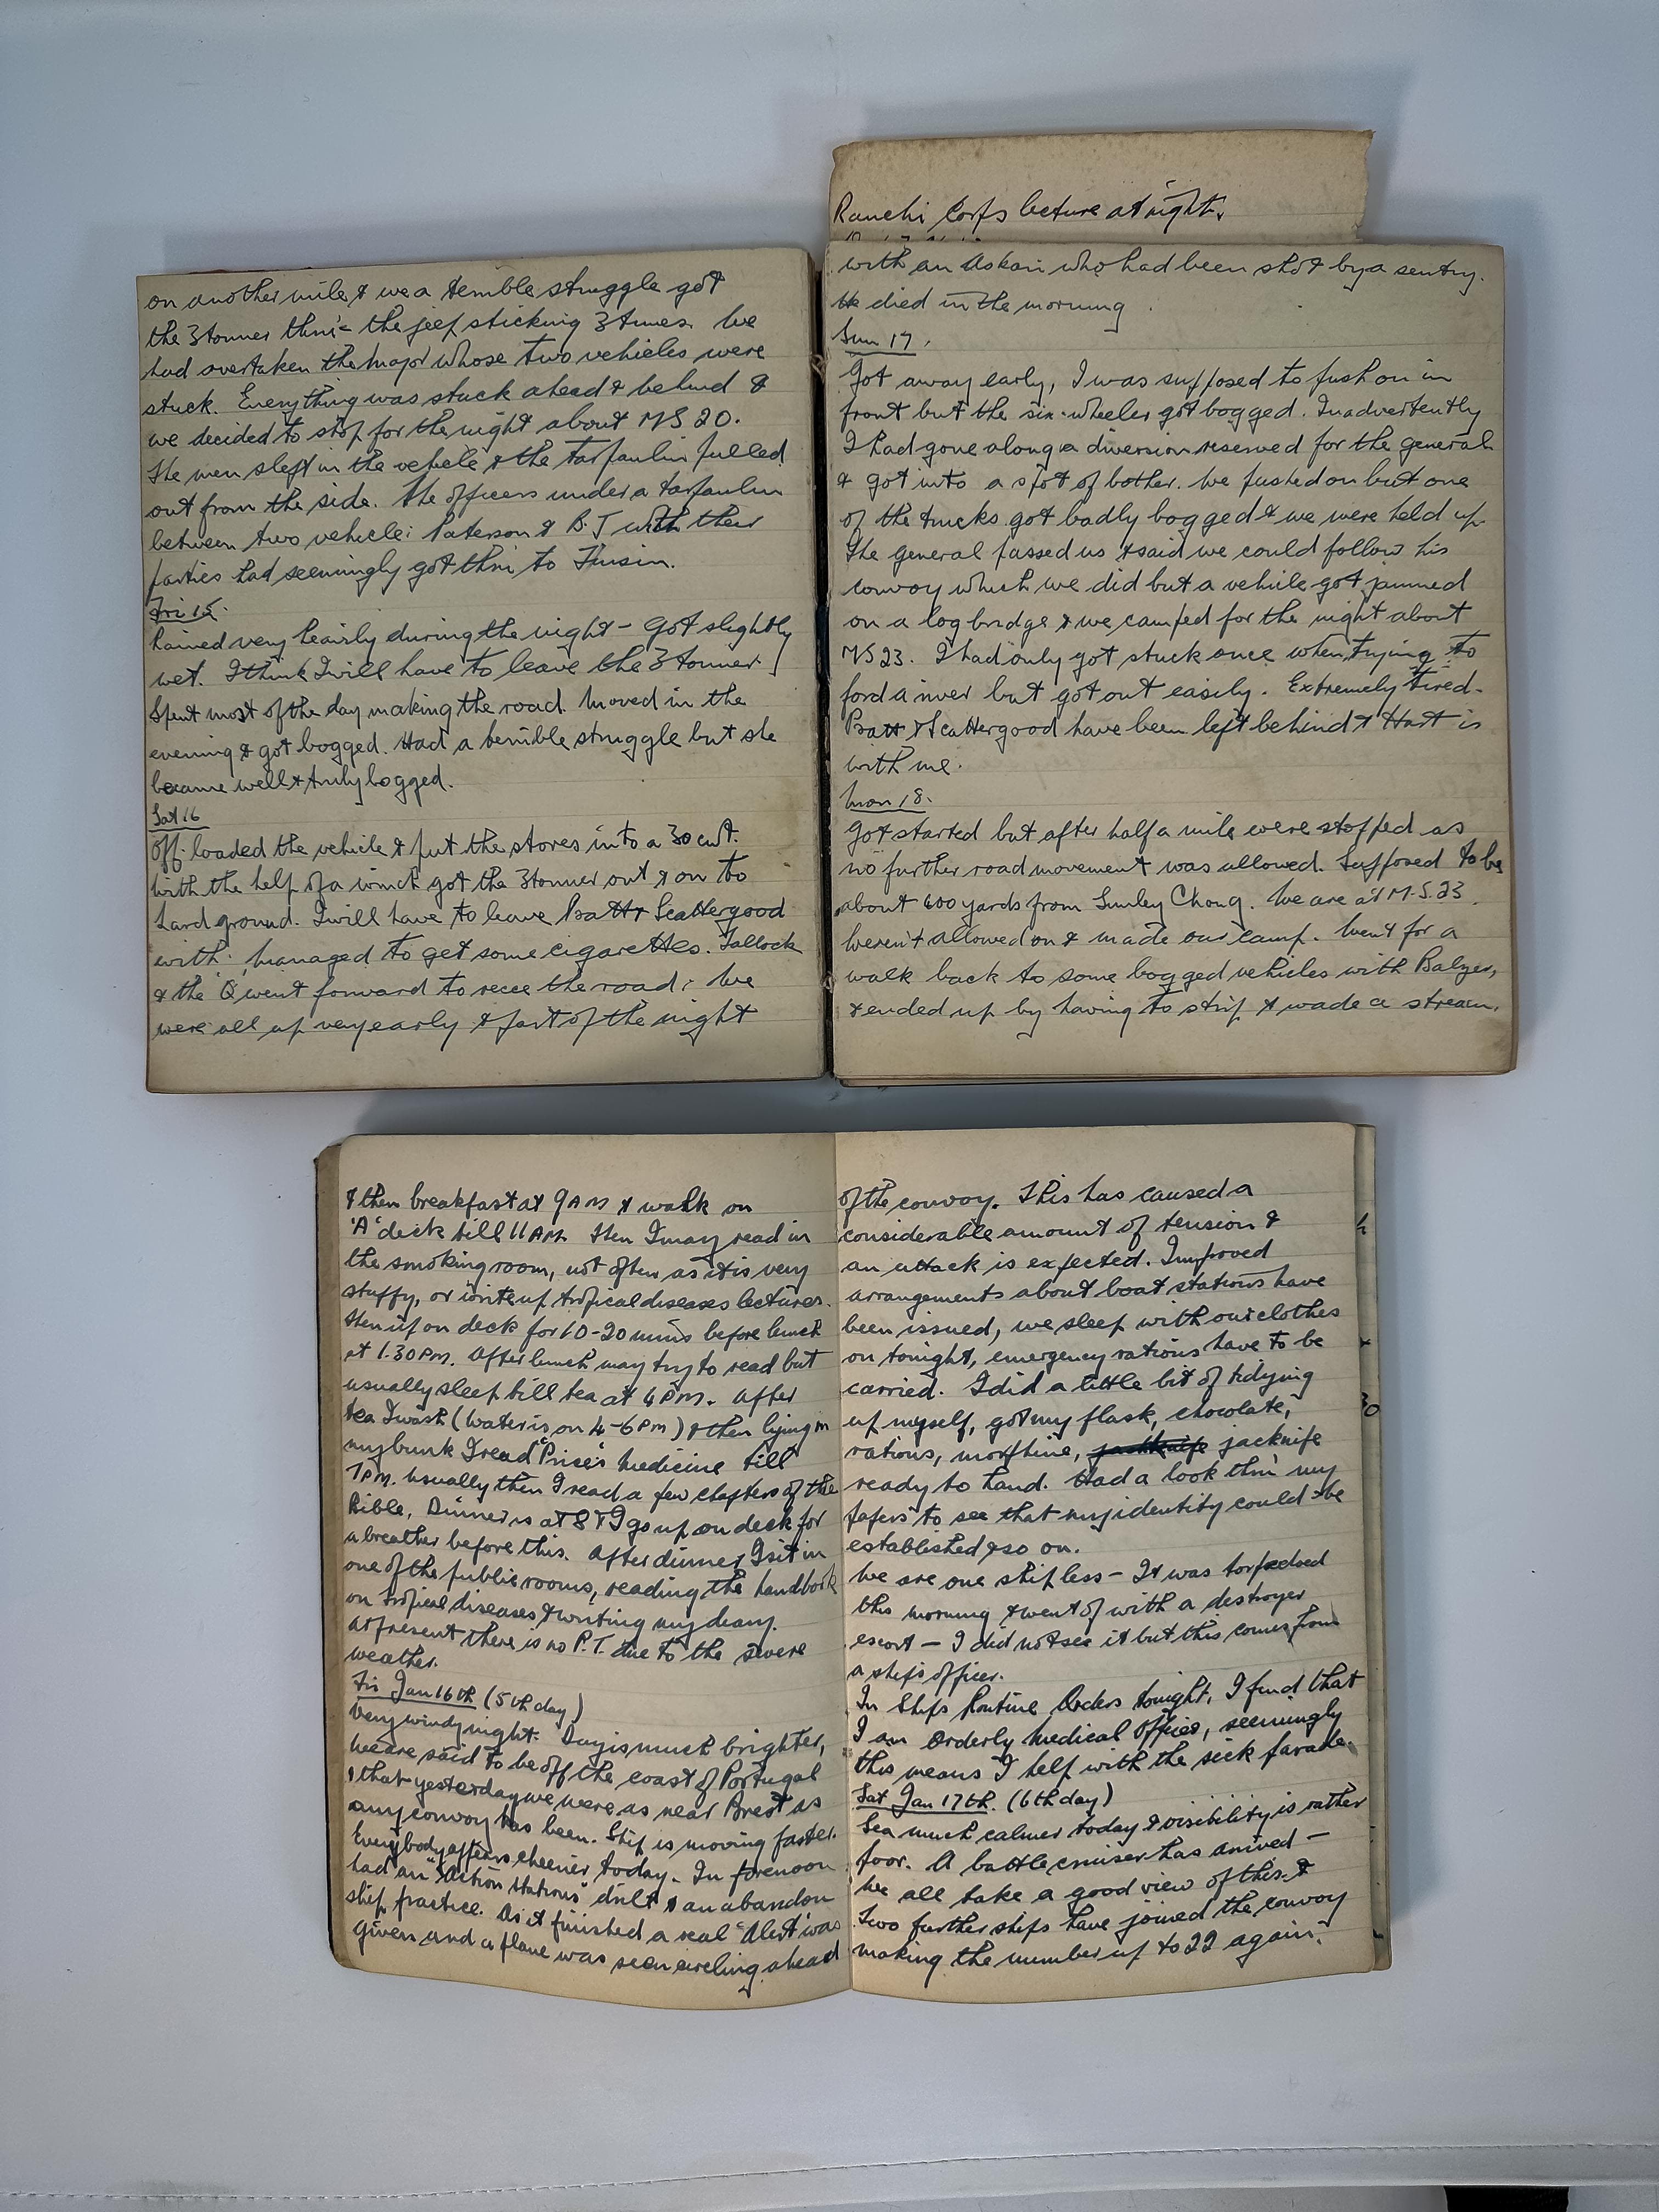 Ranchi Corps lecture at night.
on another mile & we a terrible struggle got
the 3 tonner thro' - the jeep sticking 3 times. We
had overtaken the Major whose two vehicles were
stuck. Everything was stuck ahead & behind &
we decided to stop for the night about MS 20.
The men slept in the vehicle & the tarpaulin pulled
out from the side. The officers under a tarpaulin
between two vehicles. Paterson & B.J with their
parties had seemingly got thro to
Fri 15.
Rained very heavily during the night - Got slightly
wet. I think I will have to leave the 3 tonner.
Spent most of the day making the road. Moved in the
evening & got bogged. Had a terrible struggle but she
became well & truly bogged.
Sat 16
Off-loaded the vehicle & put the stores into a 30 cwt.
With the help of a winch got the 3 tonner out & on to
hard ground. I will have to leave Pratt & Scattergood
with. Managed to get some cigarettes. Tallock
& the 'Q' went forward to recce the road: We
were all up very early & part of the night
with an Askari who had been shot by a sentry.
He died in the morning.
Sun 17.
Got away early, I was supposed to push on in
front but the six-wheeler got bogged. Inadvertently
I had gone along a diversion reserved for the general
& got into a spot of bother. We pushed on but one
of the trucks got badly bogged & we were held up.
The general passed us & said we could follow his
convoy which we did but a vehicle got jammed
on a log bridge & we camped for the night about
MS 23. I had only got stuck once when trying to
ford a river but got out easily. Extremely tired.
Pratt & Scattergood have been left behind & Hart is
with me.
Mon 18.
Got started but after half a mile were stopped as
no further road movement was allowed. Supposed to be
about 600 yards from Sunley Chong. We are at M.S. 23.
Weren't allowed on & made our camp. Went for a
walk back to some bogged vehicles with Balzer,
& ended up by having to strip & wade a stream.
& then breakfast at 9 AM & walk on
'A' deck till 11 AM. Then I may read in
the smoking room, not often as it is very
stuffy, or write up tropical diseases lectures.
Then up on deck for 10-20 mins before lunch
at 1.30 PM. After lunch may try to read but
usually sleep till tea at 4 PM. After
tea I wash (Water is on 4-6 PM) & then lying in
my bunk I read "Price's" Medicine till
7 PM. Usually then I read a few chapters of the
Bible, Dinner is at 8 & I go up on deck for
a breather before this. After dinner I sit in
one of the public rooms, reading the handbook
on tropical diseases & writing my diary.
At present there is no P.T. due to the severe
weather.
Fri Jan 16th (5th day)
Very windy night. Day is much brighter,
We are said to be off the coast of Portugal
& that yesterday we were as near Brest as
any convoy has been. Ship is moving faster.
Everybody appears cheerier today. In forenoon
had an "Action Stations" drill & an abandon
ship practice. As it finished a real "Alert" was
given and a plane was seen circling ahead
of the convoy. This has caused a
considerable amount of tension &
an attack is expected. Improved
arrangements about boat stations have
been issued, we sleep with our clothes
on tonight, emergency rations have to be
carried. I did a little bit of tidying
up myself, got my flask, chocolate,
rations, morphine, jackknife jacknife
ready to hand. Had a look thro' my
papers to see that my identity could be
established & so on.
We are one ship less - It was torpedoed
this morning & went of with a destroyer
escort - I did not see it but this comes from
a ship's officer.
In Ships Routine Orders tonight, I find that
I am Orderly Medical Officer, seemingly
this means I help with the sick parade.
Sat Jan 17th. (6th day)
Sea much calmer today & visibility is rather
poor. A battle cruiser has arrived -
We all take a good view of this. &
Two further ships have joined the convoy
making the number up to 22 again.